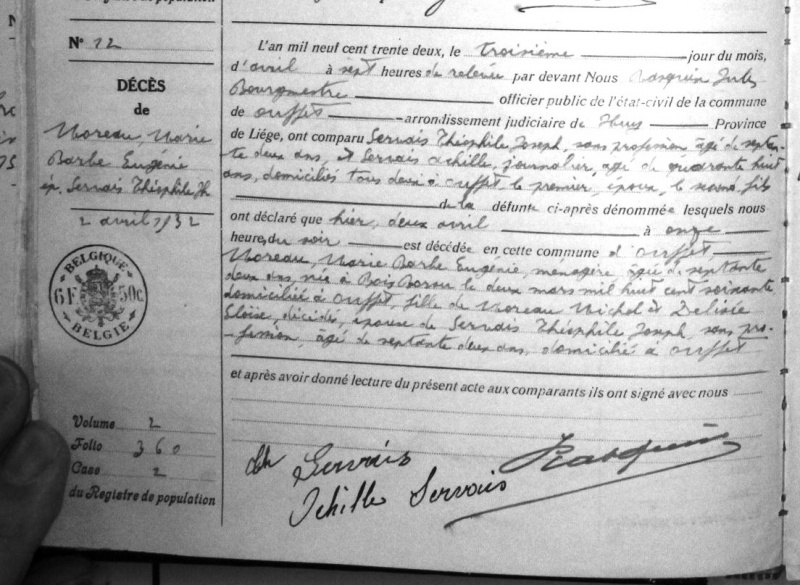 N° 12
DÉCÈS
de
Moreau, Marie
Barbe Eugénie
ép. Servais Théophile, Jh
2 avril 1932
BELGIQUE
6 F 50c.
BELGIE
Volume 2
Folio 360
Case 2
du Registre de population
L'an mil neuf cent trente deux, le troisième jour du mois,
d'avril à sept heures du relevée par devant Nous Rasquin Jules
Bourgmestre officier public de l'état-civil de la commune
de Ouffet arrondissement judiciaire de Huy Province
de Liége, ont comparu Servais Théophile Joseph, sans profession âgé de septan-
te deux ans, et Servais Achille, journalier, âgé de quarante huit
ans, domiciliés tous deux à Ouffet le premier, époux, le second fils
de la défunte ci-après dénommée lesquels nous
ont déclaré que hier, deux avril à onze
heures du soir est décédée en cette commune d'Ouffet
Moreau, Marie Barbe Eugénie, ménagère âgée de septante
deux ans, née à Bois Borsu le deux mars mil huit cent soixante
domiciliée à Ouffet, fille de Moreau Michel et Delisée
Eloïse, décédés, épouse de Servais Théophile Joseph, sans pro-
-fession, âgé de septante deux ans, domicilié à Ouffet
et après avoir donné lecture du présent acte aux comparants ils ont signé avec nous
Th Servais
Achille Servais
Rasquin